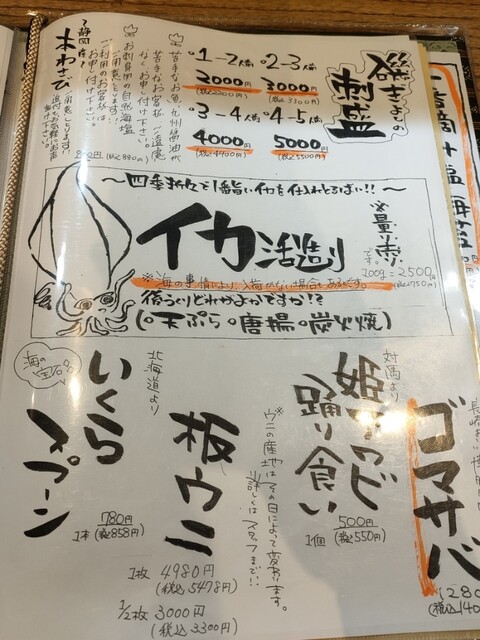 磯ぎよしの
刺盛
1-2人前
3000円
(税込3300円)
2-3人前
3000円
(税込3300円)
3-4人前
4000円
(税込4400円)
4-5人前
5000円
(税込5500円)
苦手なお魚、九州醤油が
苦手なお客様、ご遠慮
なくお申し付け下さい。
お刺身用の自然海塩
ご用意しとります
ご利用のお客様は
お申し付け下さい。
静岡産
本わさび
ご用意しとります!!
800円(税込880円)
~四季折々で1番旨いイカを仕入れとるばい!!~
イカ活造り
※量り売り
です。
100g=2500円
(税込2750円)
※海の事情により入荷がない場合もあるとです。
後造りどれがよかですか!?
(天ぷら 唐揚 炭火焼)
ゴマサバ
対馬より
姫アワビ
踊り食い
500円
1個(税込550円)
※ウニの産地はその日によって変わります。
詳しくはスタッフまで!!
北海道より
板ウニ
1枚 4980円
(税込5478円)
1/2枚 3000円
(税込3300円)
海の宝石
いくら
スプーン
780円
1本(税込858円)